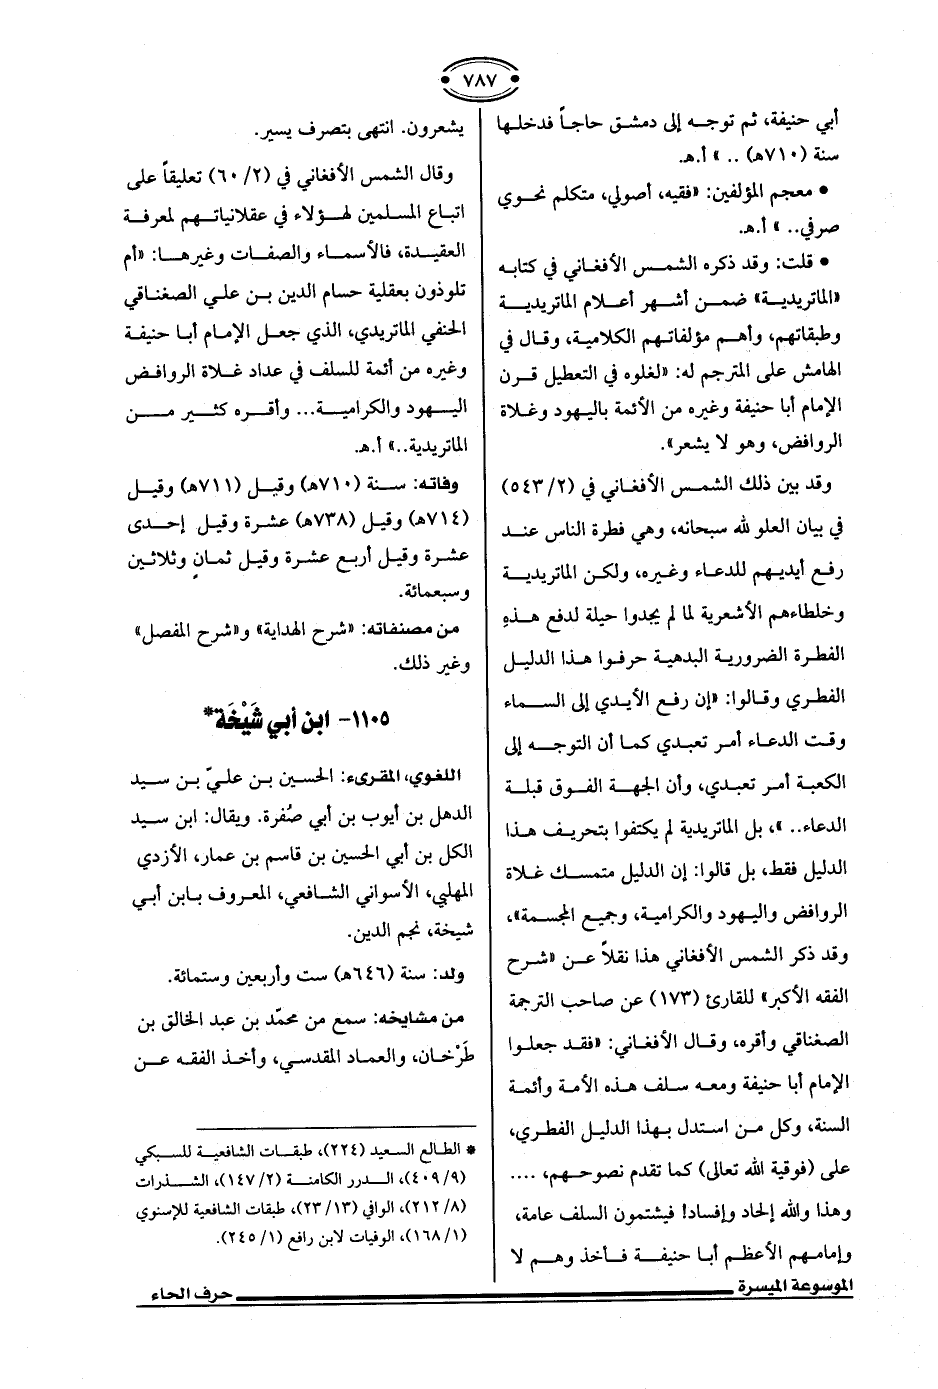 ٧٨٧
أبي حنيفة، ثم توجه إلى دمشق حاجاً فدخلها
سنة (٧١٠هـ) .. » أ.هـ.
• معجم المؤلفين: «فقيه، أصولي، متكلم نحوي
صرفي.. » أ.هـ.
• قلت: وقد ذكره الشمس الأفغاني في كتابه
«الماتريدية» ضمن أشهر أعلام الماتريدية
وطبقاتهم، وأهم مؤلفاتهم الكلامية، وقال في
الهامش على المترجم له: «لغلوه في التعطيل قرن
الإمام أبا حنيفة وغيره من الأئمة باليهود وغلاة
الروافض، وهو لا يشعر».
وقد بين ذلك الشمس الأفغاني في (٥٤٣/٢)
في بيان العلو لله سبحانه، وهي فطرة الناس عند
رفع أيديهم للدعاء وغيره، ولكن الماتريدية
وخلطاءهم الأشعرية لما لم يجدوا حيلة لدفع هذهِ
الفطرة الضرورية البدهية حرفوا هذا الدليل
الفطري وقالوا: «إن رفع الأيدي إلى السماء
وقت الدعاء أمر تعبدي كما أن التوجه إلى
الكعبة أمر تعبدي، وأن الجهة الفوق قبلة
الدعاء.. »، بل الماتريدية لم يكتفوا بتحريف هذا
الدليل فقط، بل قالوا: إن الدليل متمسك غلاة
الروافض واليهود والكرامية، وجميع المجسمة»،
وقد ذكر الشمس الأفغاني هذا نقلاً عن «شرح
الفقه الأكبر» للقارئ (١٧٣) عن صاحب الترجمة
الصغناقي وأقره، وقال الأفغاني: «فقد جعلوا
الإمام أبا حنيفة ومعه سلف هذه الأمة وأئمة
السنة، وكل من استدل بهذا الدليل الفطري،
على (فوقية الله تعالى) كما تقدم نصوحهم، ....
وهذا والله إلحاد وإفساد! فيشتمون السلف عامة،
وإمامهم الأعظم أبا حنيفة فأخذ وهم لا
يشعرون. انتهى بتصرف يسير.
وقال الشمس الأفغاني في (٦٠/٢) تعليقاً على
اتباع المسلمين لهؤلاء في عقلانياتهم لمعرفة
العقيدة، فالأسماء والصفات وغيرها: «أم
تلوذون بعقلية حسام الدين بن علي الصغناقي
الحنفي الماتريدي، الذي جعل الإمام أبا حنيفة
وغيره من أئمة للسلف في عداد غلاة الروافض
اليهود والكرامية... وأقره كثير من
الماتريدية..» أ.هـ.
وفاته: سنة (٧١٠هـ) وقيل (٧١١هـ) وقيل
(٧١٤هـ) وقيل (٧٣٨هـ) عشرة وقيل إحدى
عشرة وقيل أربع عشرة وقيل ثمانٍ وثلاثين
وسبعمائة.
من مصنفاته: «شرح الهداية» و«شرح المفصل»
وغير ذلك.
١١٠٥- ابن أبي شَيْخَة*
اللغوي، المقرىء: الحسين بن عليّ بن سيد
الدهل بن أيوب بن أبي صُفرة. ويقال: ابن سيد
الكل بن أبي الحسين بن قاسم بن عمار، الأزدي
المهلبي، الأسواني الشافعي، المعروف بابن أبي
شيخة، نجم الدين.
ولد: سنة (٦٤٦هـ) ست وأربعين وستمائة.
من مشايخه: سمع من محمّد بن عبد الخالق بن
طَرْخان، والعماد المقدسي، وأخذ الفقه عن
* الطالع السعيد (٢٢٤)، طبقات الشافعية للسبكي
(٤٠٩/٩)، الدرر الكامنة (١٤٧/٢)، الشذرات
(٢١٢/٨)، الوافي (٢٣/١٣)، طبقات الشافعية للإسنوي
(١٦٨/١)، الوفيات لابن رافع (٢٤٥/١).
الموسوعة الميسرة
حرف الحاء